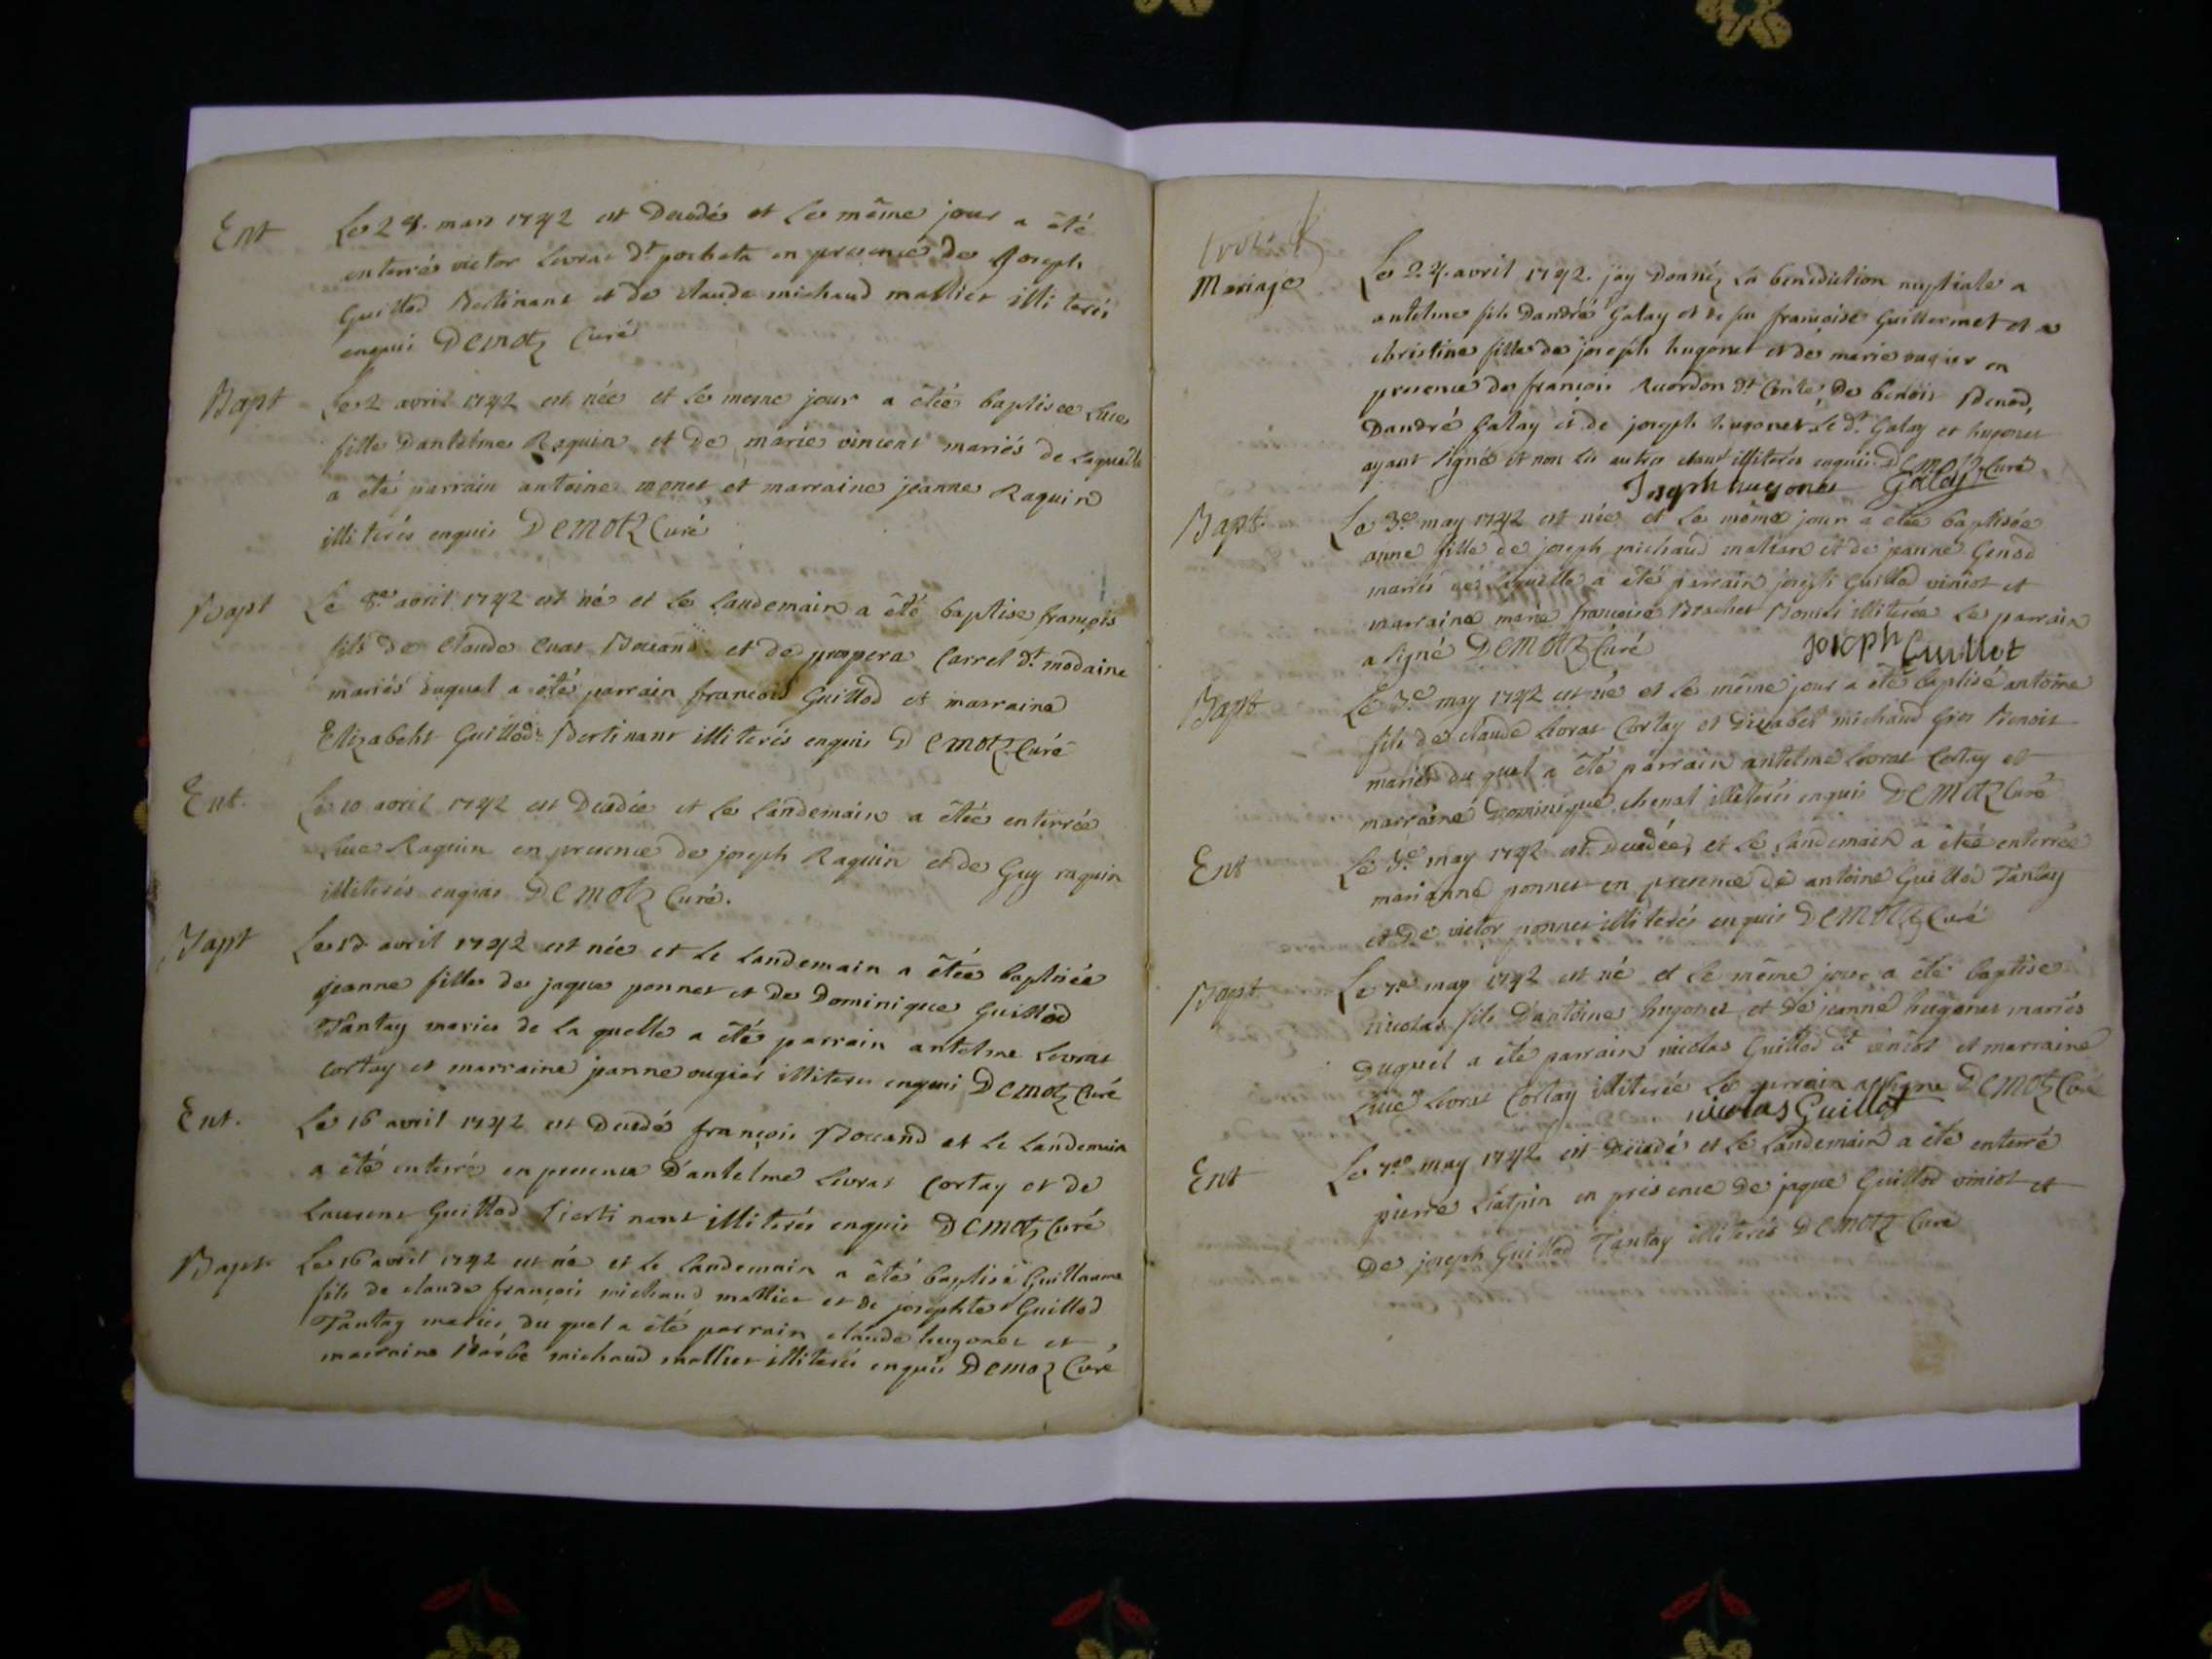 Ent Le 28. mars 1742 est decedé et le même jour a êté
enterré victor Levrat dt pocheta en presence de Joseph
Guillod Bertinant et de claude michaud mallier illiterés
enquis Demotz Curé
Bapt Le 2 avril 1742 est née et le meme jour a êtée baptisee Luce
fille dantelme Raquin et de marie vincent mariés de laquelle
a êté parrain antoine monet et marraine jeanne Raquin
illiterés enquis Demotz Curé
Bapt Le 8e avril 1742 est né et le landemain a êté baptise françois
fils de Claude Bocand et de prospera Carrel dt modaine
mariés duquel a êté parrain francois Guillod et marraine
Elizabeht Guillod Bertinant illiterés enquis Demotz Curé
Ent. Le 10 avril 1742 est decedée et le landemain a êtée enterrée
Luce Raquin en presence de joseph Raquin et de Guy raquin
illiterés enquis Demotz Curé.
Bapt Le avril 1742 est née et le landemain a êtée baptisée
jeanne fille de jaque ponnet et de Dominique Guillod
Tantay maries de la quelle a êté parrain antelme Levrat
cortay et marraine jeanne ougier illiteres enquis Demotz Curé
Ent. Le 16 avril 1742 est decedé françois Bocand et le landemain
a êté enterré en presence dantelme Levrat Cortay et de
Laurent Guillod Bertinant illiterés enquis Demotz Curé
Bapt Le 16 avril 1742 est né et le landemain a êté baptisé Guillaume
fils de claude françois michaud mallier et de josephte Guillod
Tantay mariés du quel a êté parrain claude hugonet et
marraine Barbe michaud mallier illiterés enquis Demoz Curé
Mariage Le 24. avril 1742. jay donné la benediction nuptiale a
antelme fils dandré Galay et de feu françoise Guillermet et a
christine fille de joseph hugonet et de marie ougier en
presence de françois Ruordon dt Conte, de benoit Benod,
dandré Galay et de joseph hugonet le dt Galay et hugonet
ayant signé et non les autres etant illiterés enquis Demotz Curé
Joseph hugonet Galay
Bapt. Le 3e may 1742 est née et le même jour a êtée baptisée
anne fille de joseph michaud et de jeanne Genod
mariés de laquelle a êté parrain joseph Guillod viniot et
marraine marie françoise Brachet illiterée le parrain
a signé Demotz Curé Joseph Guillot
Bapt Le 3e may 1742 est né et le même jour a êté baptisé antoine
fils de claude Levrat Cortay et michaud Gros Benoit
mariés du quel a êté parrain antelme Levrat Cortay et
marraine Dominique chenal illiterés enquis Demotz Curé
Ent Le 3e may 1742 est decedée, et le landemain a êtée enterrée
marianne ponnet en presence de antoine Guillod Tantay
et de victor ponnet illiterés enquis Demotz Curé
Bapt Le 7e may 1742 est né et le même jour a êté baptisé
nicolas fils dantoine hugonet et de jeanne hugonet mariés
duquel a êté parrain nicolas Guillod dt viniot et marraine
Luce Levrat Cortay illiterée le parrain a signe Demotz Curé
nicolas Guillot
Ent Le 7e may 1742 est decedé et le landemain a êté enterré
pierre en presence de jaque Guillod viniot et
de joseph Guillod Tantay illiterés Demotz Curé